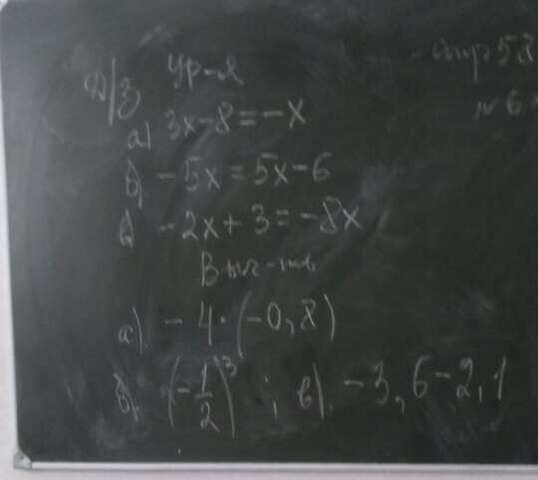 Д/З Ур-я
стр 58
№ 6
а) 3x-8=-x
б) -5x=5x-6
в) -2x+3=-8x
Выч-ть
а) -4·(-0,8)
б) (-1/2)³; в) -3,6-2,1